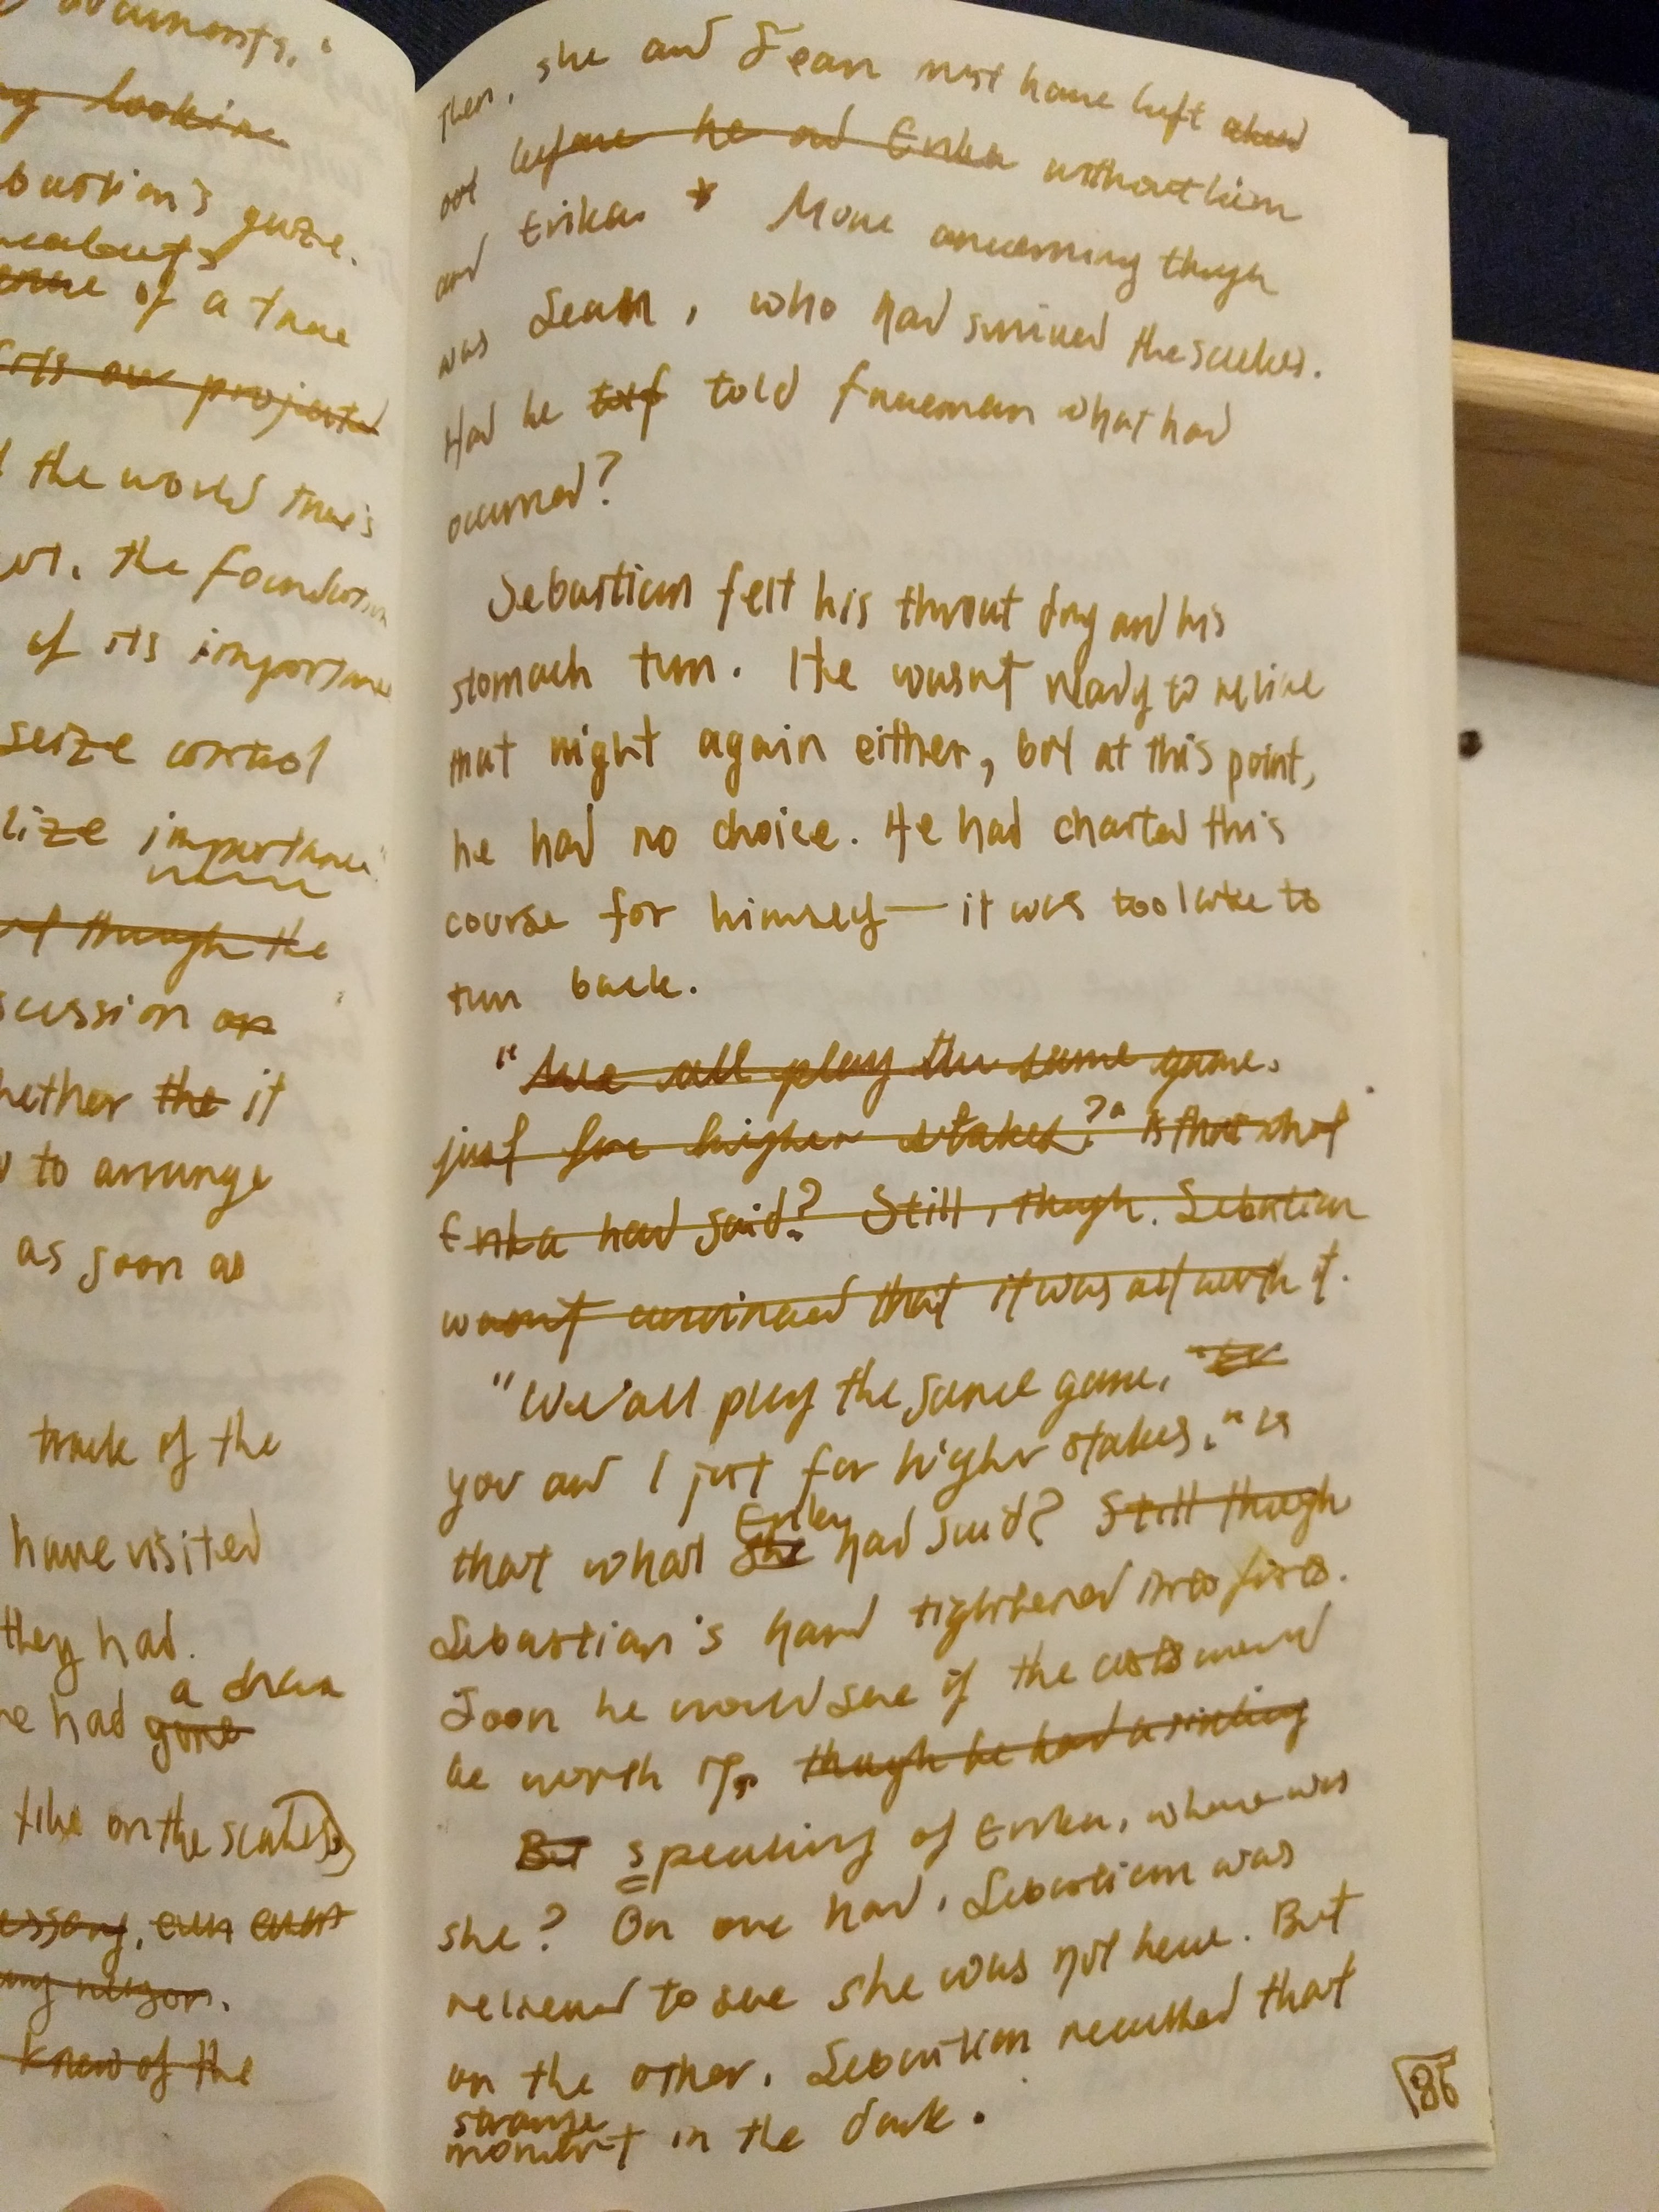 documents,"
looking
bastian's gaze.
of a true
our projected
the world trees
the foundation
of its importance
seize control
lize importance"
though the
scussion on
hether the it
to arrange
as soon as
track of the
have visited
they had.
a drea
e had gone
tike on the scales
essary, even
knew of the
then, she and Sean must have left ahead
out before he and Erika without him
and Erika. * More concerning though
was Sean, who had survived the scales.
Had he told Freeman what had
occurred?
Sebastian felt his throat dry and his
stomach turn. He wasn't ready to relive
that night again either, but at this point,
he had no choice. He had charted this
course for himself — it was too late to
turn back.
"We all play the same game.
just for higher stakes?" Is that what
Erika had said? Still, though, Sebastian
wasn't convinced that it was all worth it.
"We all play the same game,
you and I just for higher stakes." is
Erika
that what she had said? Still though
Sebastian's hand tightened into fists.
Soon he would see if the costs would
be worth it. though he had a sinking
But speaking of Erika, where was
she? On one hand, Sebastian was
relieved to see she was not here. But
on the other, Sebastian recalled that
strange
moment in the dark.
86